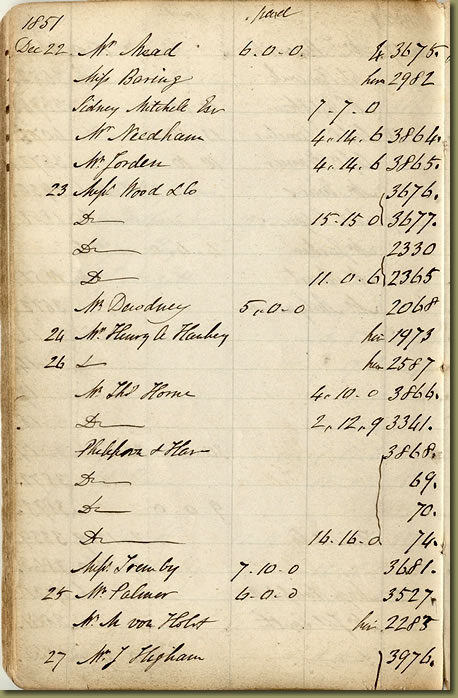 1851 paid
Dec 22 Mr. Mead 6.0.0. 3675.
Miss Baring hire 2982
Sidney Mitchell Esr 7-7-0
Mr Needham 4.14.6 3864.
Mr Jorden 4.14.6 3865.
23 Messrs Wood & Co 3676.
Do 15.15.0 3677.
Do 2330
Do 11.0.6 2365
5.0-0 2068
24 Mr Henry A hire 1973
26 hire 2587
Mr Thos Horne 4.10.0 3866.
Do 2,12,9 3341.
& 3868.
Do 69.
Do 70.
Do 16.16.0 74.
7-10-0 3681.
25 Mr Palmer 6.0.0 3527.
Mr. M von Holst hire 2283
27 Mr J Higham 3976.